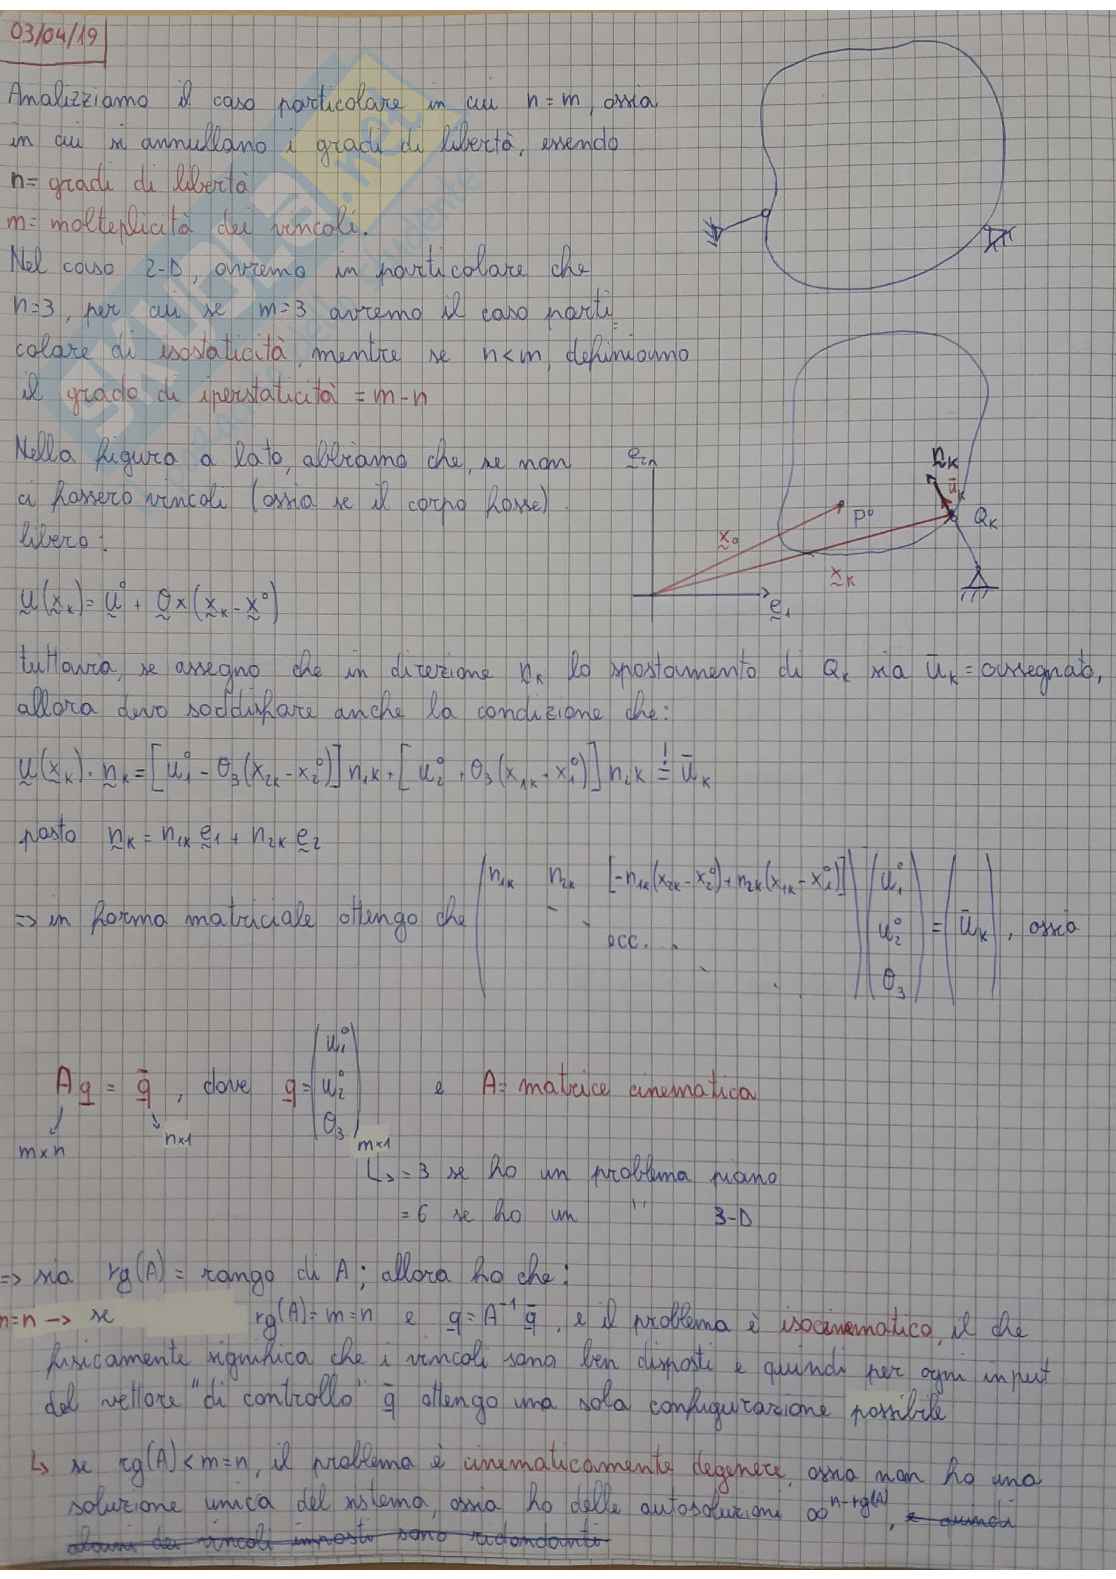 03/04/19
Analizziamo il caso particolare in cui n=m, ossia
in cui si annullano i gradi di libertà, essendo
n= gradi di libertà
m= molteplicità dei vincoli.
Nel caso 2-D, avremo in particolare che
n=3, per cui se m=3 avremo il caso parti
colare di isostaticità, mentre se n<m, definiamo
il grado di iperstaticità = m-n
Nella figura a lato, abbiamo che, se non
ci fossero vincoli (ossia se il corpo fosse)
libero:
e₂
n_k
ū_k
P⁰
Q_k
x₀
x_k
e₁
u(x_k) = u⁰ + θ×(x_k - x⁰)
tuttavia, se assegno che in direzione n_k lo spostamento di Q_k sia ū_k = assegnato,
allora devo soddisfare anche la condizione che:
u(x_k)·n_k = [u₁⁰ - θ₃(x₂k - x₂⁰)] n₁k + [u₂⁰ + θ₃(x₁k - x₁⁰)] n₂k != ū_k
posto n_k = n₁k e₁ + n₂k e₂
=> in forma matriciale ottengo che (n₁k n₂k [-n₁k(x₂k - x₂⁰) + n₂k(x₁k - x₁⁰)] ecc.) (u₁⁰ u₂⁰ θ₃) = (ū_k), ossia
A q = q̄, dove q = (u₁⁰ u₂⁰ θ₃) e A = matrice cinematica
m×n
n×1
m×1
↳ = 3 se ho un problema piano
= 6 se ho un " 3-D
=> sia rg(A) = rango di A; allora ho che:
m=n → se rg(A) = m = n e q = A⁻¹ q̄, e il problema è isocinematico, il che
fisicamente significa che i vincoli sono ben disposti e quindi per ogni input
del vettore "di controllo" q̄ ottengo una sola configurazione possibile
↳ se rg(A) < m = n, il problema è cinematicamente degenere, ossia non ho una
soluzione unica del sistema, ossia ho delle autosoluzioni ∞^(n-rg(A)), e quindi
alcuni dei vincoli imposti sono ridondanti